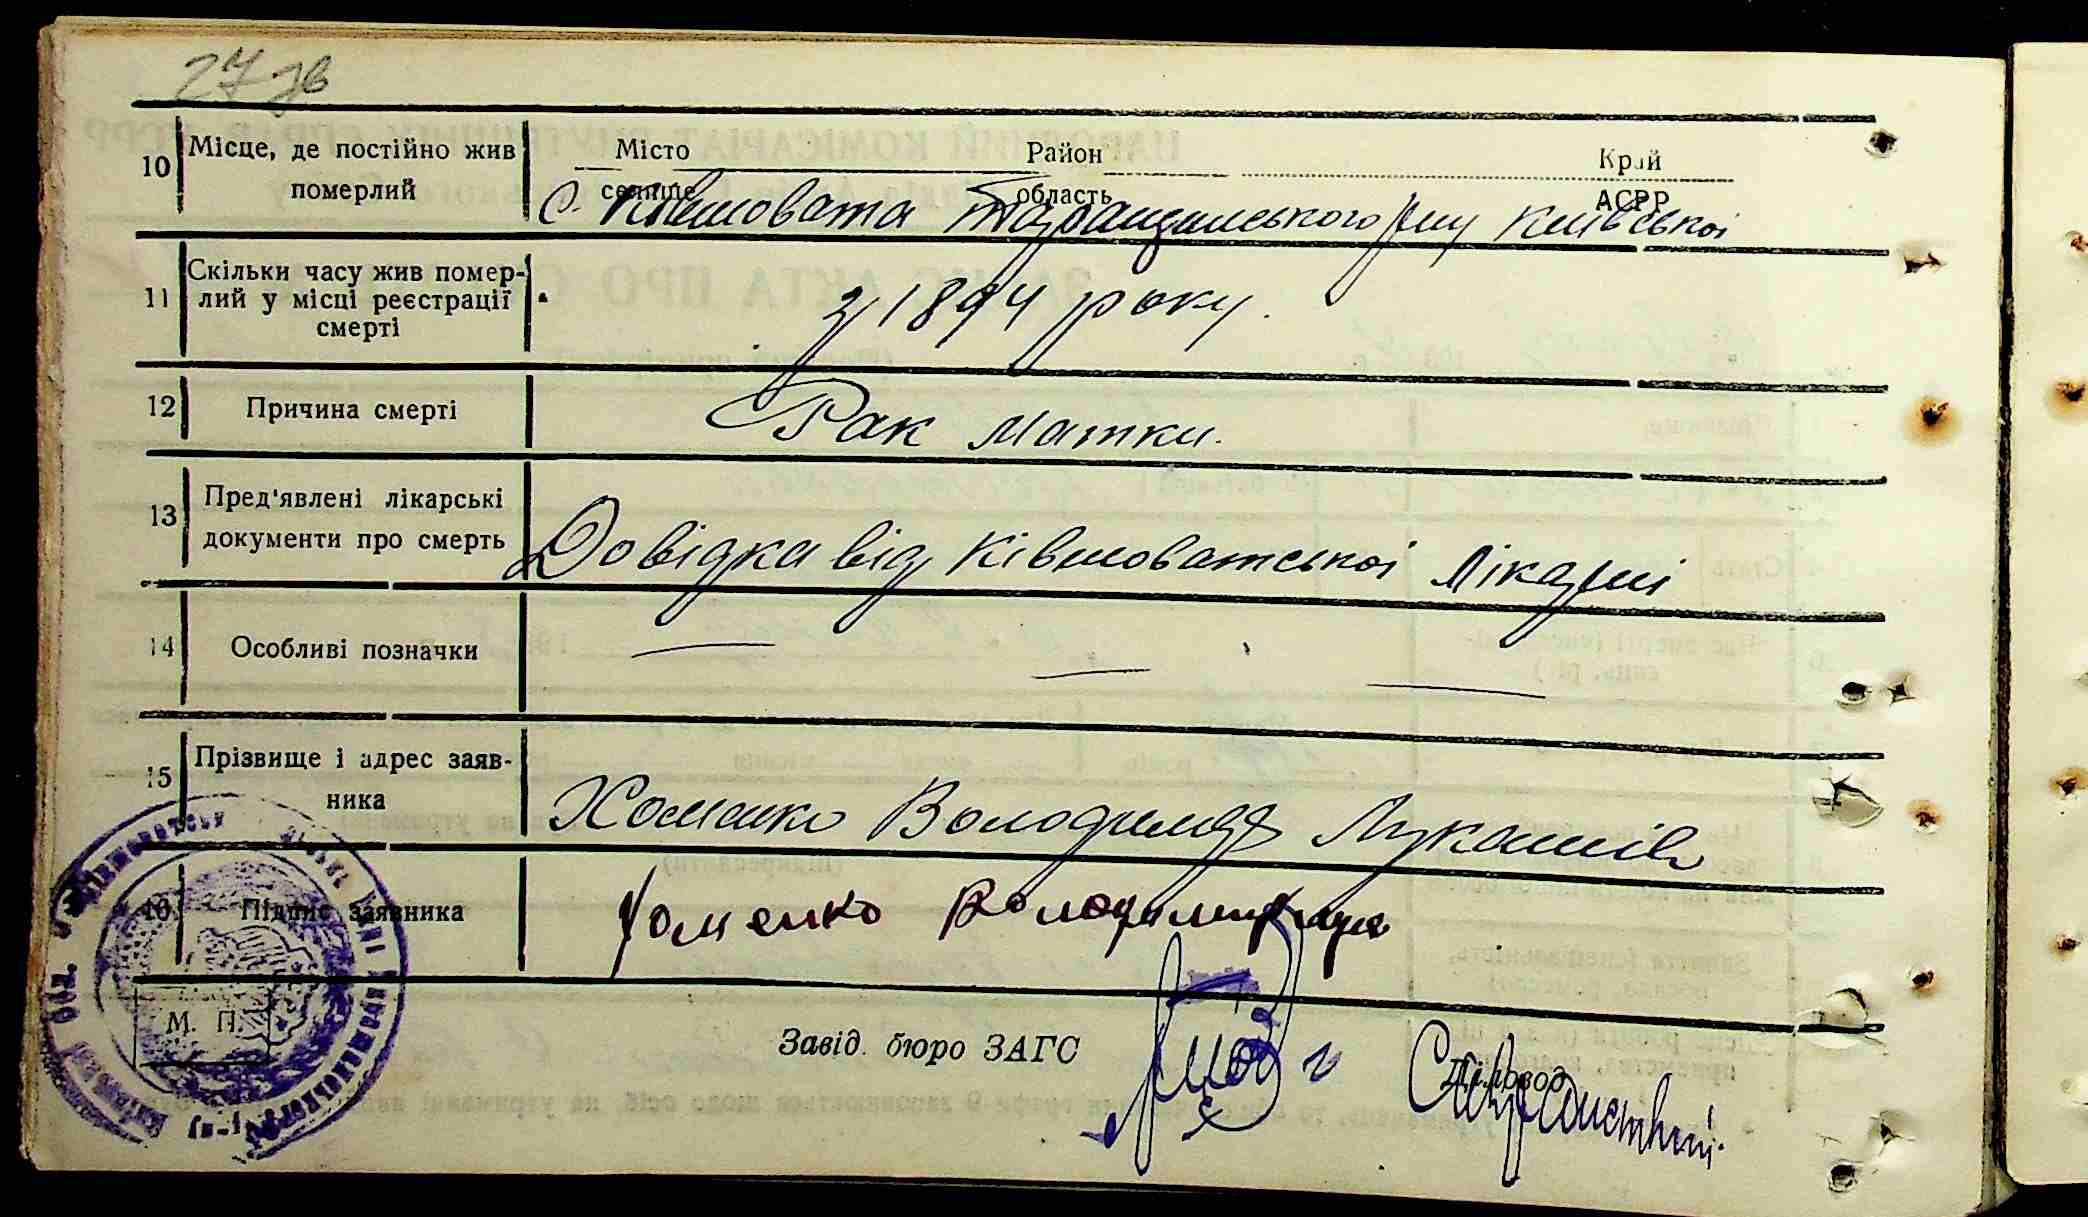 27 зв
10 Місце, де постійно жив померлий
Місто Район Край
селище область АСРР
с. Ківшовата Таращанського р-ну Київської
11 Скільки часу жив померлий у місці реєстрації смерті
з 1894 року.
12 Причина смерті
Рак матки.
13 Пред'явлені лікарські документи про смерть
Довідка від Ківшоватської лікарні
14 Особливі позначки
— — —
15 Прізвище і адрес заявника
Хоменко Володимир Лукашів
16. Підпис заявника
Хоменко
М. П.
Завід. бюро ЗАГС
Діловод